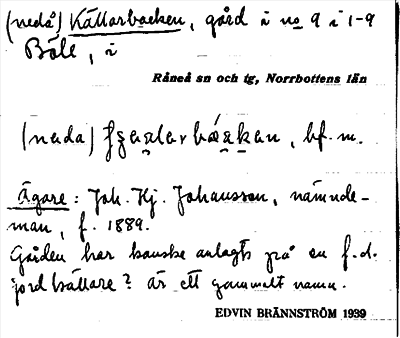 (nedå) Källarbacken, gård i no 9 i 1-9
Böle, i
Råneå sn och tg, Norrbottens län
(neda) , bf. m.
Ägare: Joh. Kj. Johansson, nämnde-
man, f. 1889.
Gården har kanske anlagts på en f.d.
jordkällare? är ett gammalt namn.
EDVIN BRÄNNSTRÖM 1939